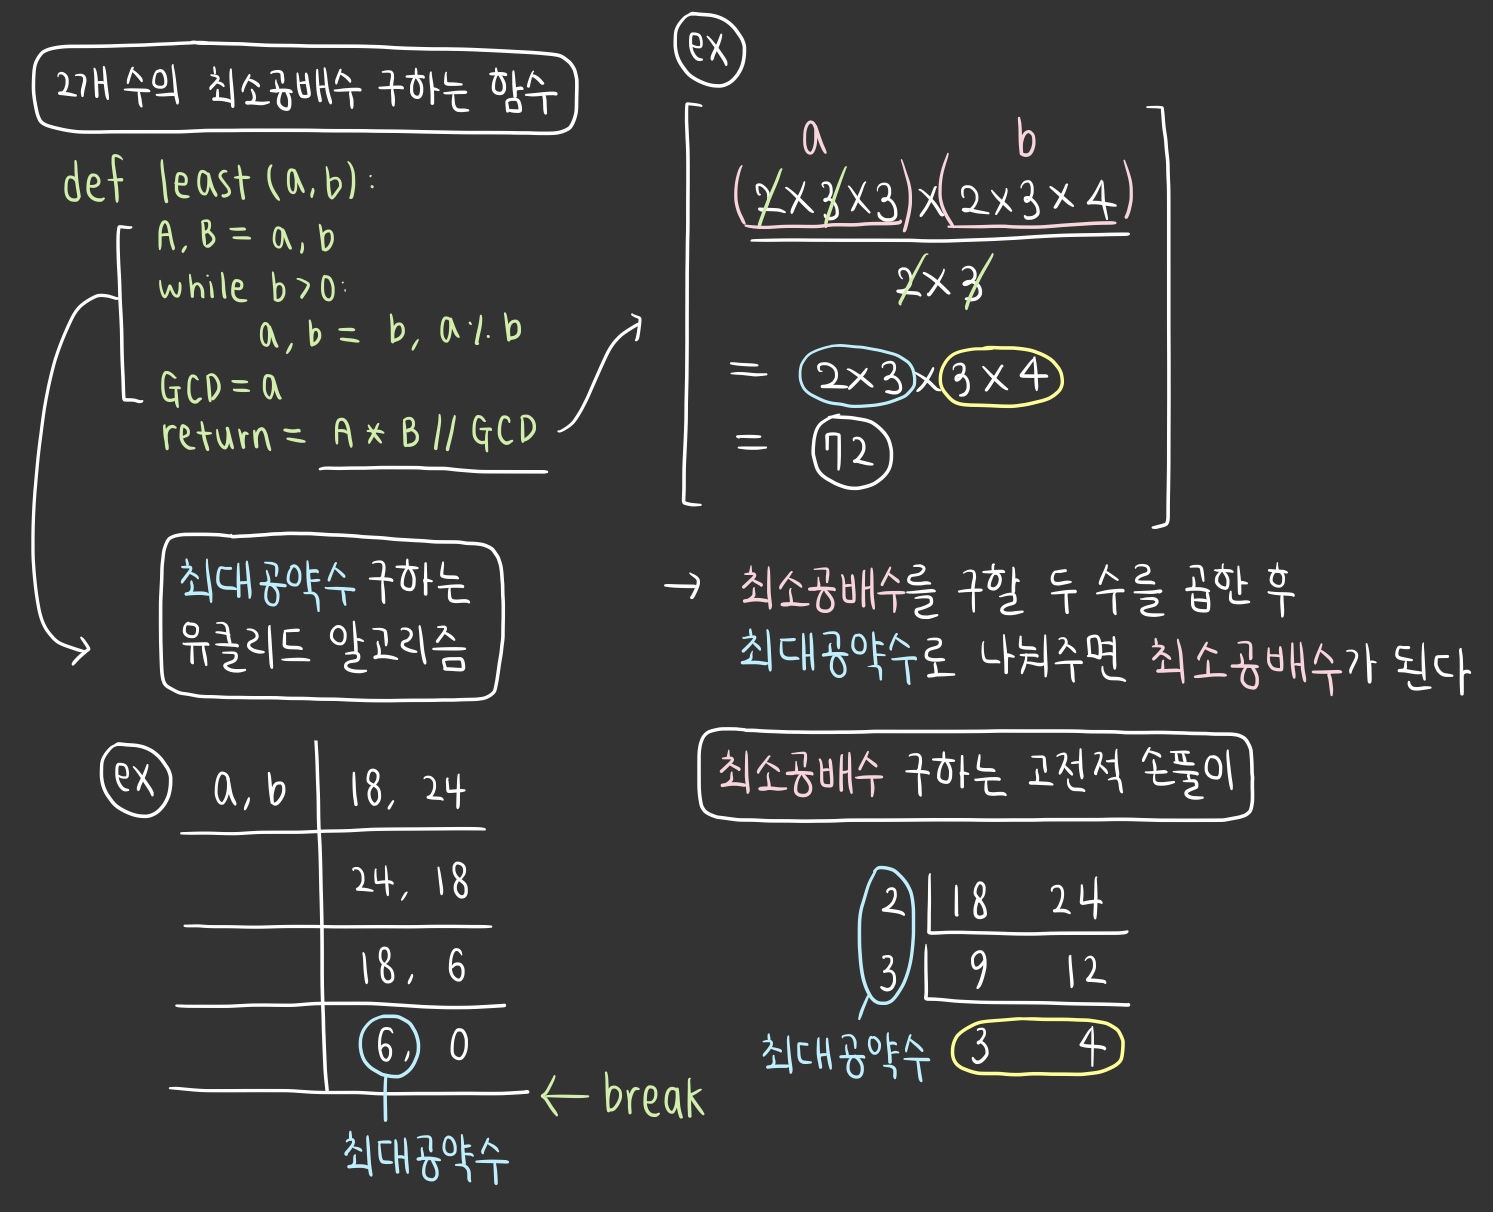 2개 수의 최소공배수 구하는 함수
def least(a,b):
A, B = a, b
while b>0:
a, b = b, a % b
GCD = a
return = A * B // GCD
ex
a b
(2×3×3)×(2×3×4)
2×3
= 2×3×3×4
= 72
최대공약수 구하는
유클리드 알고리즘
→ 최소공배수를 구할 두 수를 곱한 후
최대공약수로 나눠주면 최소공배수가 된다
ex a, b 18, 24
24, 18
18, 6
6, 0
← break
최대공약수
최소공배수 구하는 고전적 손풀이
2 18 24
3 9 12
최대공약수 3 4